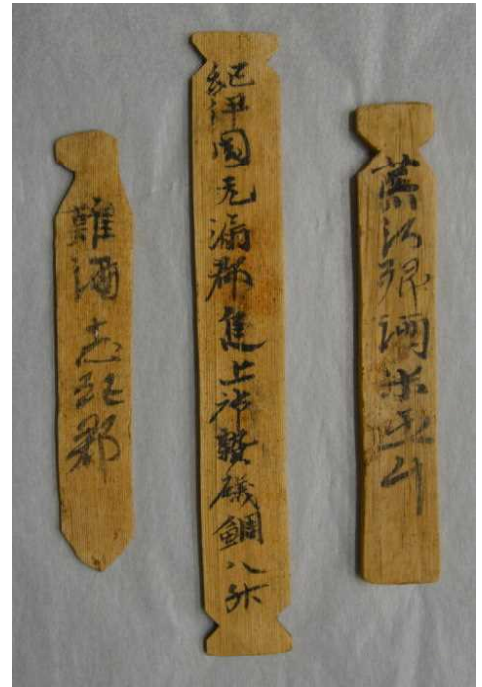 江郷酒米五斗
紀伊国无漏郡進上御贄磯鯛八升
難酒志紀郡